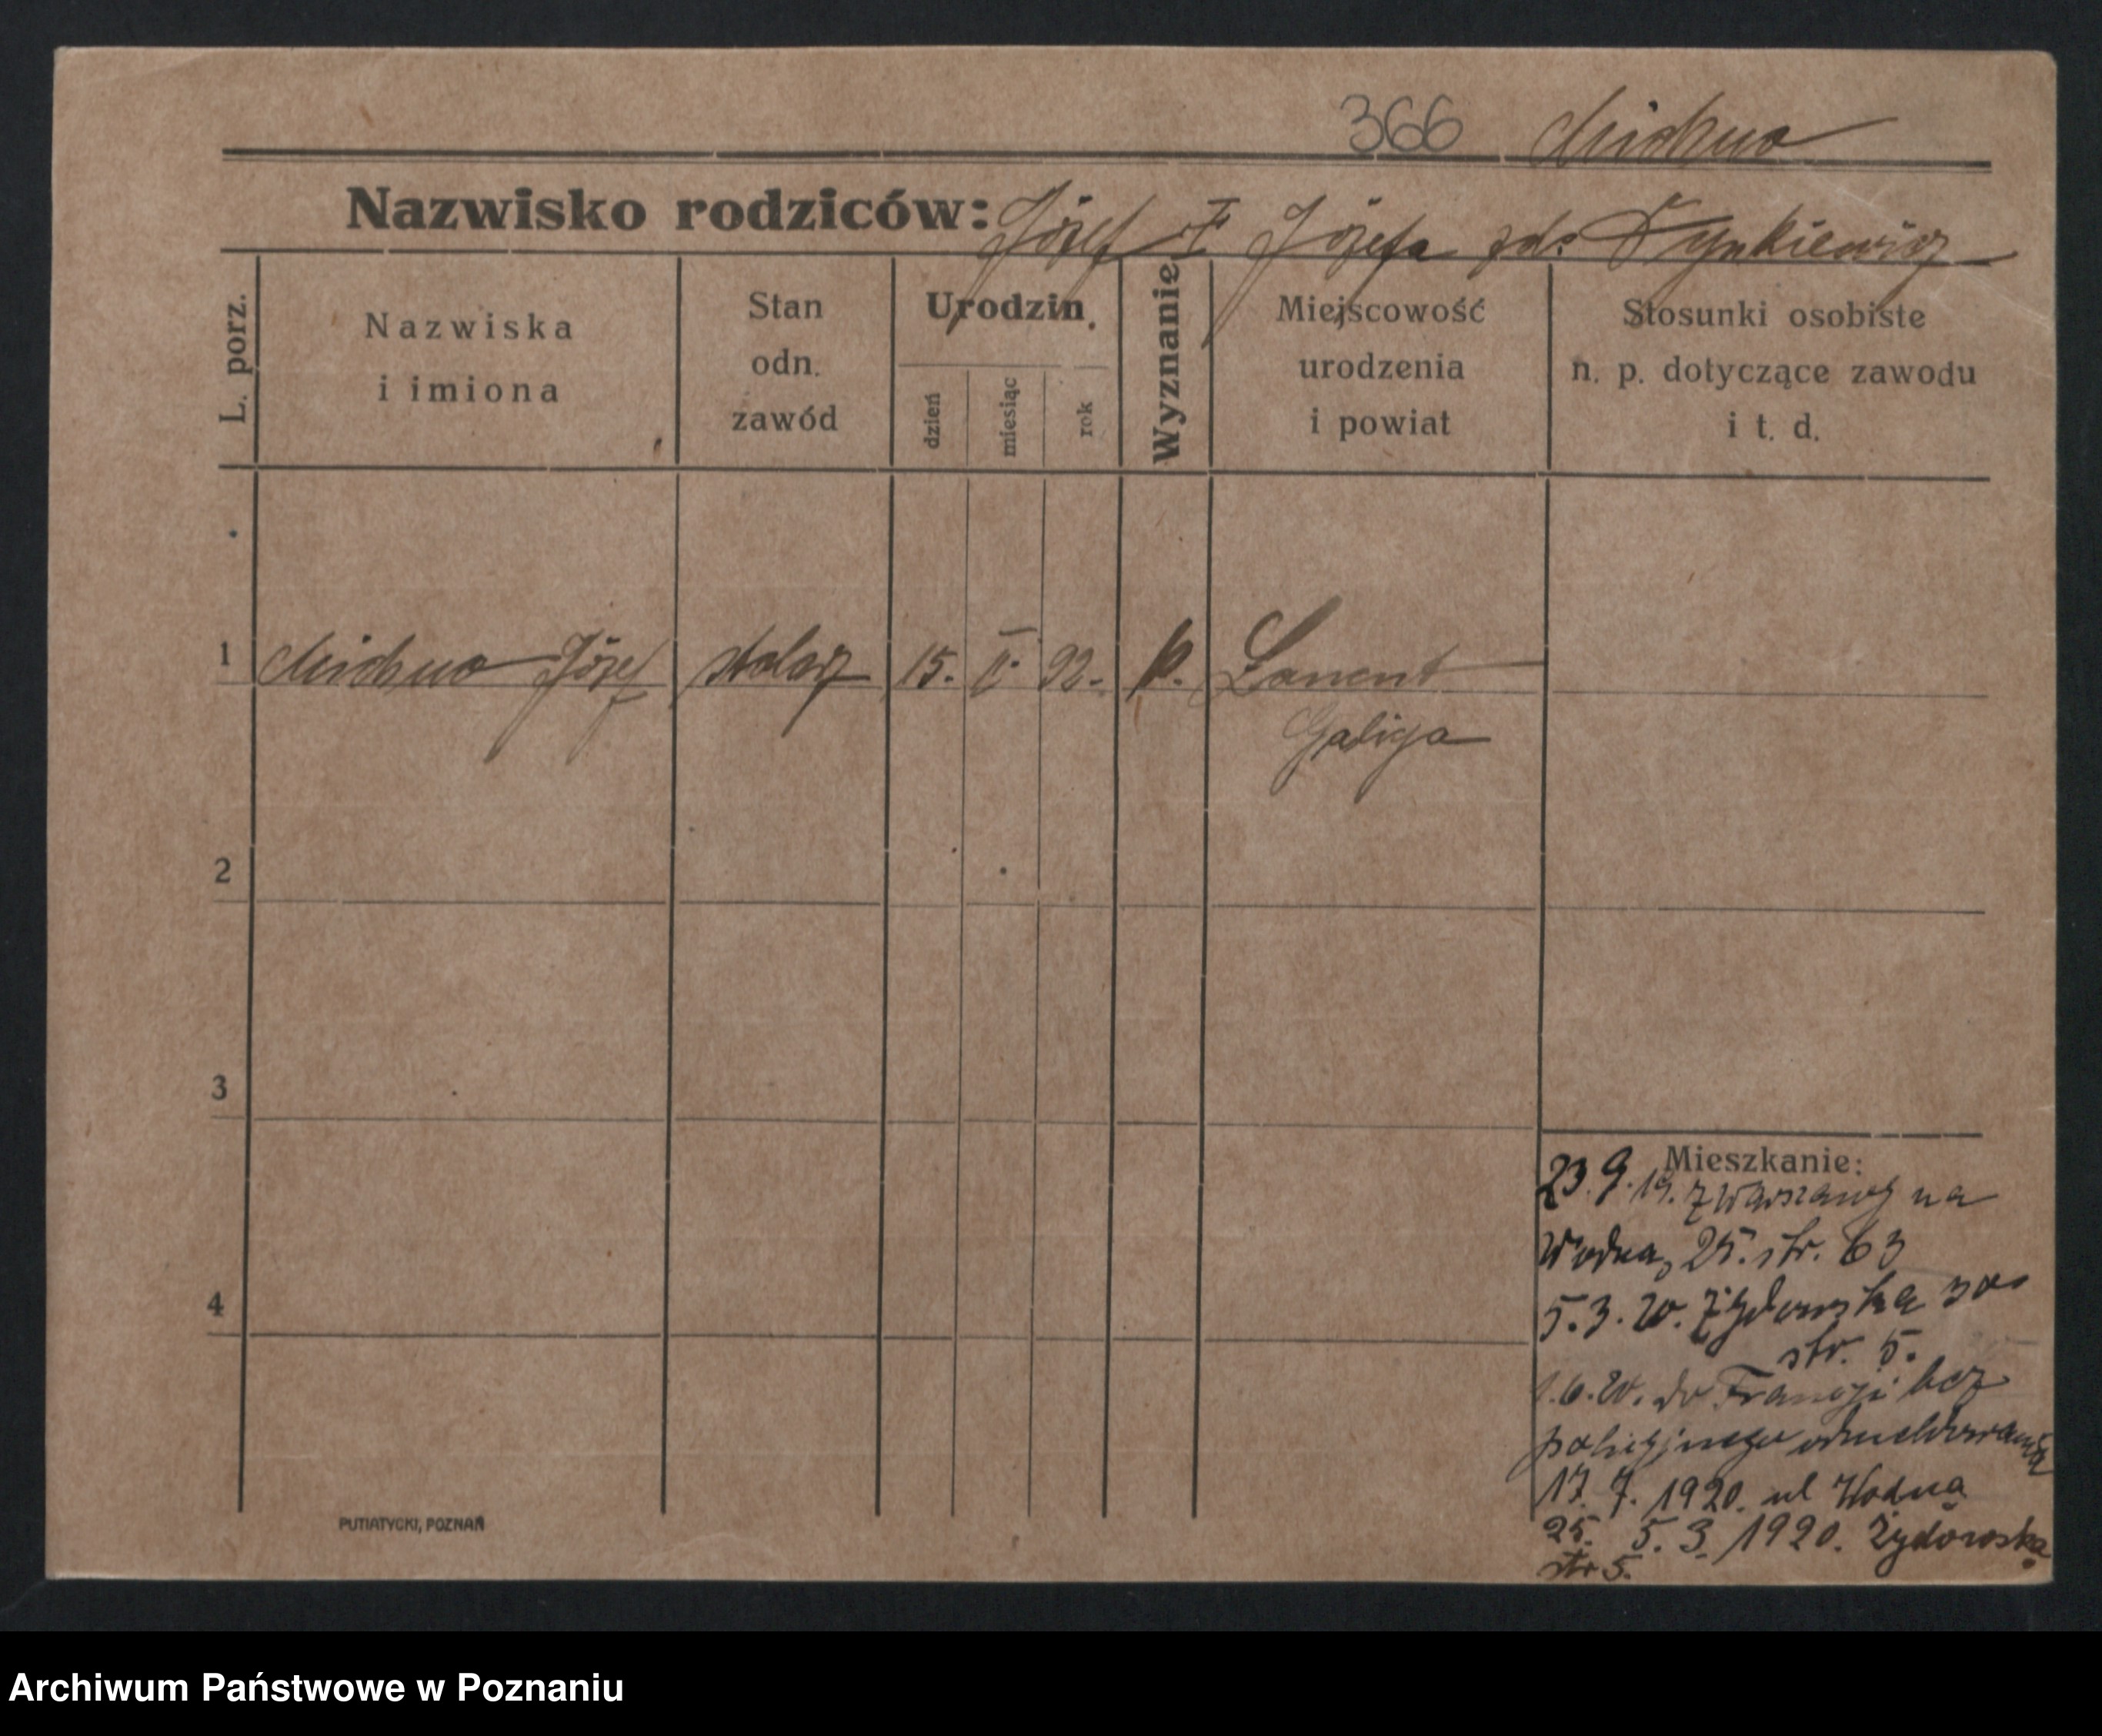 366 Michno
Nazwisko rodziców: Józef i Józefa zd. Dynkiewicz
L. porz.
Nazwiska
i imiona
Stan
odn.
zawód
Urodzin
dzień
miesiąc
rok
Wyznanie
Miejscowość
urodzenia
i powiat
Stosunki osobiste
n. p. dotyczące zawodu
i t. d.
1 Michno Józef stolarz 15. II. 92. k. Łancut
Galicja
2
3
4
Mieszkanie:
23.9.19. z Warszawy na
Wodna, 25. str. 63
5.3.20. Żydowska
str. 5.
1.6.20. do Francji bez
policyjnego odmeldowania
17. 7. 1920. ul Wodna
25. 5. 3. 1920. Żydowska
str 5.
PUTIATYCKI, POZNAŃ
Archiwum Państwowe w Poznaniu